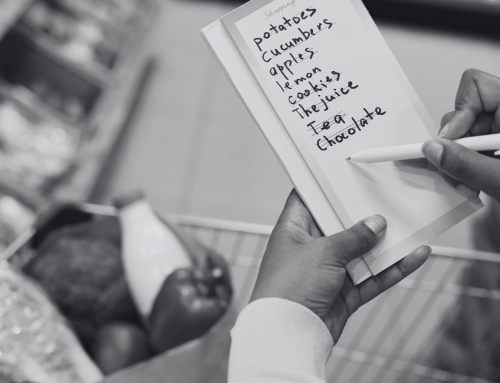 Shopping
potatoes
Cucumbers
apples
lemon
cookies
The juice
Tea
Chocolate